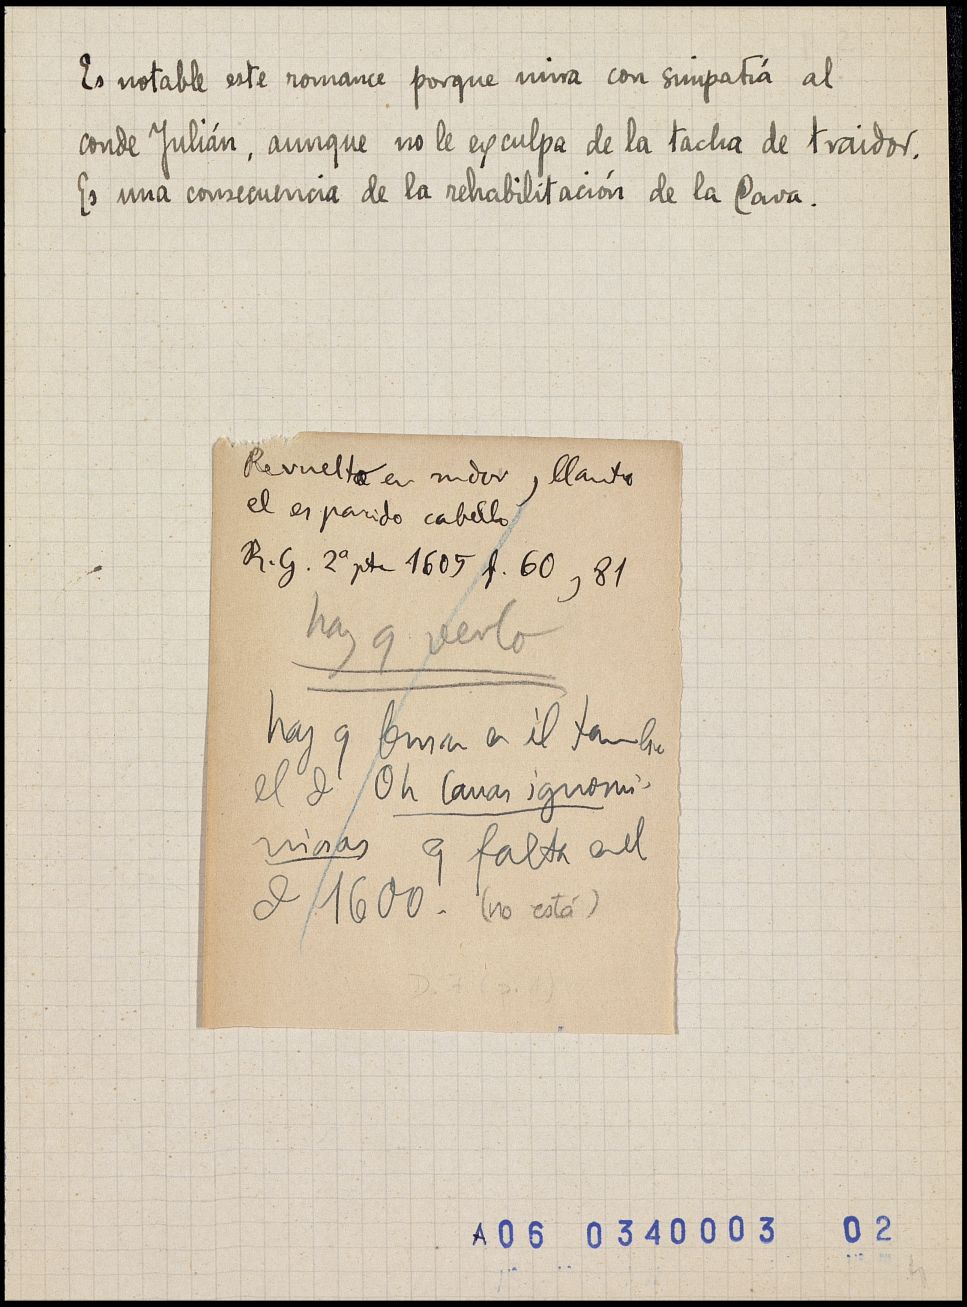 Es notable este romance porque mira con simpatía al
conde Julián, aunque no le exculpa de la tacha de traidor.
Es una consecuencia de la rehabilitación de la Cava.
Revuelto en sudor y llanto
el esparcido cabello
R.G. 2ª pte 1605 f. 60 y 81
hay q verlo
hay q buscar en él también
el d Oh Canas ignomi-
niosas q falta en el
d 1600. (no está)
A06 0340003 02